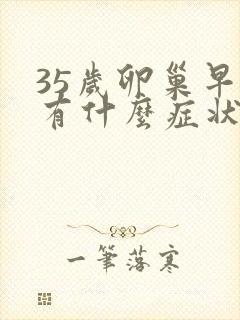 35歲卵巢早
有什麼症狀
一筆落寒